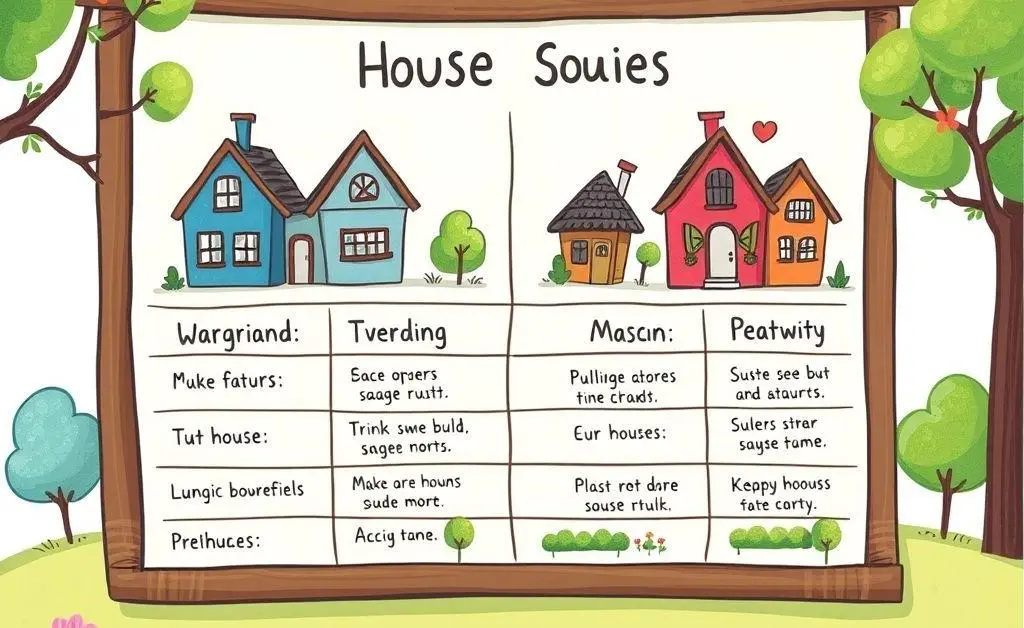 House Souies
Wargriand:
Tverding
Mascin:
Peatwity
Muke faturs:
Eace opers
saage rustt.
Pulliige atores
tine craids.
Suste see but
and staurts.
Tut house:
Trink swe buld,
sngee norts.
Eur houses:
Sulers strar
sayse tame.
Lungic bourefiels
Make are houns
sude mort.
Plast rot dare
souse rtulk.
Keppy hoouss
fate carty.
Prelhuces:
Acciy tane.